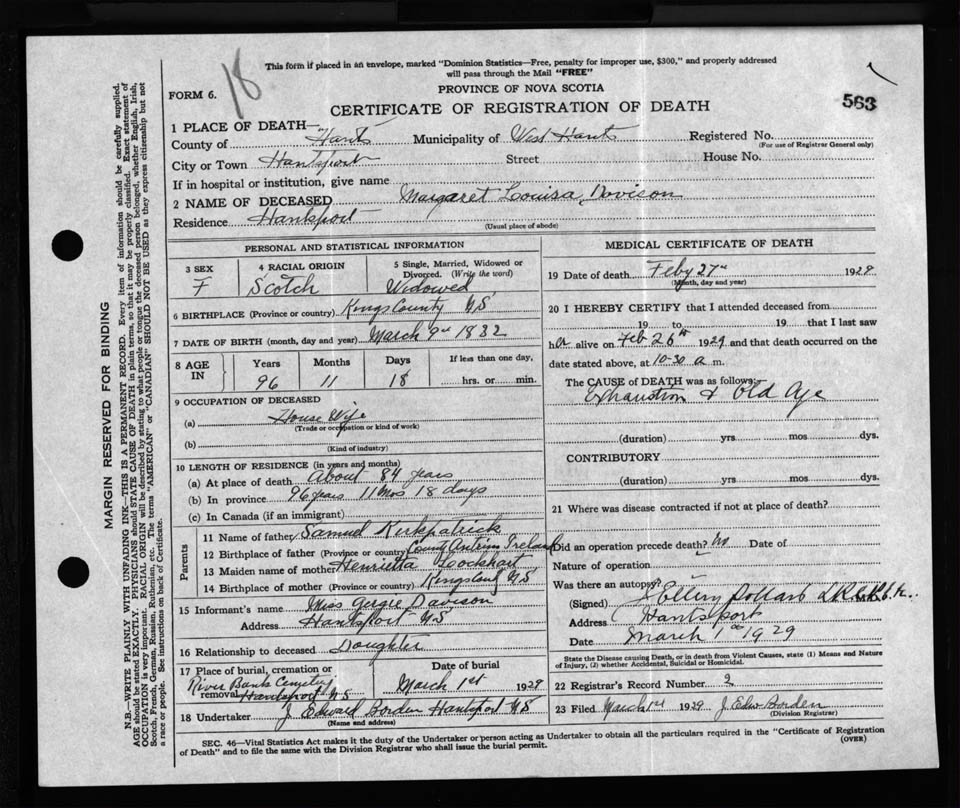 18
This form if placed in an envelope, marked "Dominion Statistics—Free, penalty for improper use, $300," and properly addressed
will pass through the Mail "FREE"
FORM 6.
PROVINCE OF NOVA SCOTIA
CERTIFICATE OF REGISTRATION OF DEATH
563
1 PLACE OF DEATH—
County of Hants Municipality of West Hants Registered No.
(For use of Registrar General only)
City or Town Hantsport Street House No.
If in hospital or institution, give name
2 NAME OF DECEASED Margaret Louisa Davison
Residence Hantsport
(Usual place of abode)
PERSONAL AND STATISTICAL INFORMATION
3 SEX F
4 RACIAL ORIGIN Scotch
5 Single, Married, Widowed or
Divorced. (Write the word)
Widowed
6 BIRTHPLACE (Province or country) Kings County NS
7 DATE OF BIRTH (month, day and year) March 9th 1832
8 AGE IN Years Months Days If less than one day,
96 11 18 hrs. or min.
9 OCCUPATION OF DECEASED
(a) House Wife
(Trade or occupation or kind of work)
(b)
(Kind of industry)
10 LENGTH OF RESIDENCE (in years and months)
(a) At place of death About 84 years
(b) In province 96 years 11 mos 18 days
(c) In Canada (if an immigrant)
Parents
11 Name of father Samuel Kirkpatrick
12 Birthplace of father (Province or country) County Antrim Ireland
13 Maiden name of mother Henrietta Lockhart
14 Birthplace of mother (Province or country) Kings Count NS
15 Informant's name Miss Davison
Address Hantsport NS
16 Relationship to deceased Daughter
17 Place of burial, cremation or
River Bank Cemetry
removal Hantsport NS
Date of burial
March 1st 1929
18 Undertaker J. Edward Borden Hantsport NS
(Name and address)
MEDICAL CERTIFICATE OF DEATH
19 Date of death Feby 27th 1929
(Month, day and year)
20 I HEREBY CERTIFY that I attended deceased from
19 to 19 that I last saw
her alive on Feb 26th 1929 and that death occurred on the
date stated above, at 10-30 a m.
The CAUSE of DEATH was as follows:—
Exhaustion & Old Age
(duration) yrs mos dys.
CONTRIBUTORY
(duration) yrs mos dys.
21 Where was disease contracted if not at place of death?
Did an operation precede death? No Date of
Nature of operation
Was there an autopsy?
(Signed)
Address Hantsport
Date March 1st 1929
State the Disease causing Death, or in death from Violent Causes, state (1) Means and Nature
of Injury, (2) whether Accidental, Suicidal or Homicidal.
22 Registrar's Record Number 2
23 Filed March 1st 1929 J. Edw Borden
(Division Registrar)
SEC. 46—Vital Statistics Act makes it the duty of the Undertaker or person acting as Undertaker to obtain all the particulars required in the "Certificate of Registration
of Death" and to file the same with the Division Registrar who shall issue the burial permit.
(OVER)
MARGIN RESERVED FOR BINDING
N.B.—WRITE PLAINLY WITH UNFADING INK—THIS IS A PERMANENT RECORD. Every item of information should be carefully supplied.
AGE should be stated EXACTLY. PHYSICIANS should STATE CAUSE OF DEATH in plain terms, so that it may be properly classified. Exact statement of
OCCUPATION is very important. RACIAL ORIGIN will be described by stating to what people or tongue the deceased person belonged, whether English, Irish,
Scotch, French, German, Russian, Ruthenian, etc. The terms "AMERICAN" or "CANADIAN" SHOULD NOT BE USED as they express citizenship but not
a race or people. See instructions on back of Certificate.